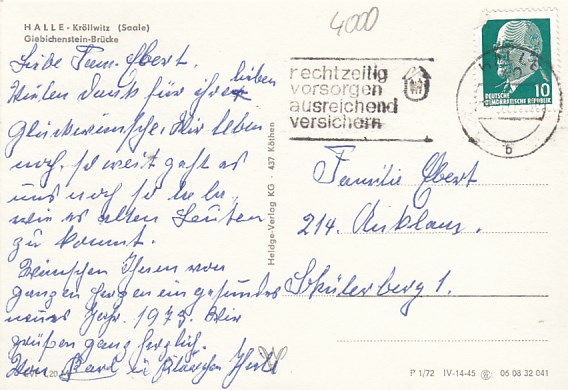 HALLE - Kröllwitz (Saale)
Giebichenstein-Brücke
4000
Liebe Fam. Ebert.
Vielen Dank für ihre lieben
Glückwünsche. Wir leben
noch, so weit geht es
uns noch so la la
wie es alten Leuten
zu kommt.
Wünschen Ihnen von
ganzen Herzen ein gesundes
neues Jahr. 1973. Wir
grüßen ganz herzlich.
Von
rechtzeitig
vorsorgen
ausreichend
versichern
HALLE
b
DEUTSCHE
DEMOKRATISCHE REPUBLIK
10
Familie Ebert
214. Anklam.
Schülerberg 1.
Heldge-Verlag KG · 437 Köthen
P 1/72 IV-14-45 06 08 32 041